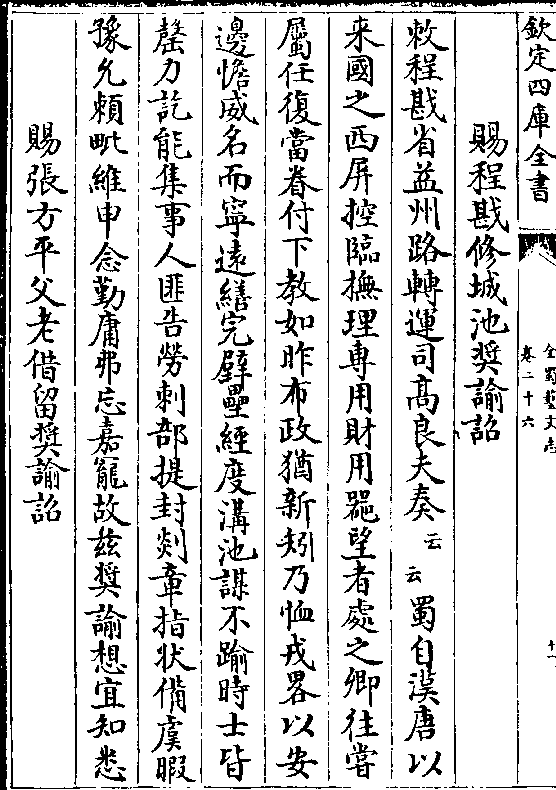 欽定四庫全書
全蜀藝文志
卷二十六
十一
賜程戡修城池奬諭詔
敕程戡省益州路轉運司高良夫奏云云蜀自漢唐以
来國之西屏控臨撫理專用財用噐望者處之卿往嘗
屬任復當眷付下教如昨布政猶新矧乃恤戎畧以安
邊憺威名而寧遠繕完壁壘經度溝池謀不踰時士皆
罄力訖能集事人匪告勞刺部提封剡章指状備虞暇
豫允頼毗維申念勤庸弗忘嘉寵故兹奬諭想宜知悉
賜張方平父老借留奬諭詔